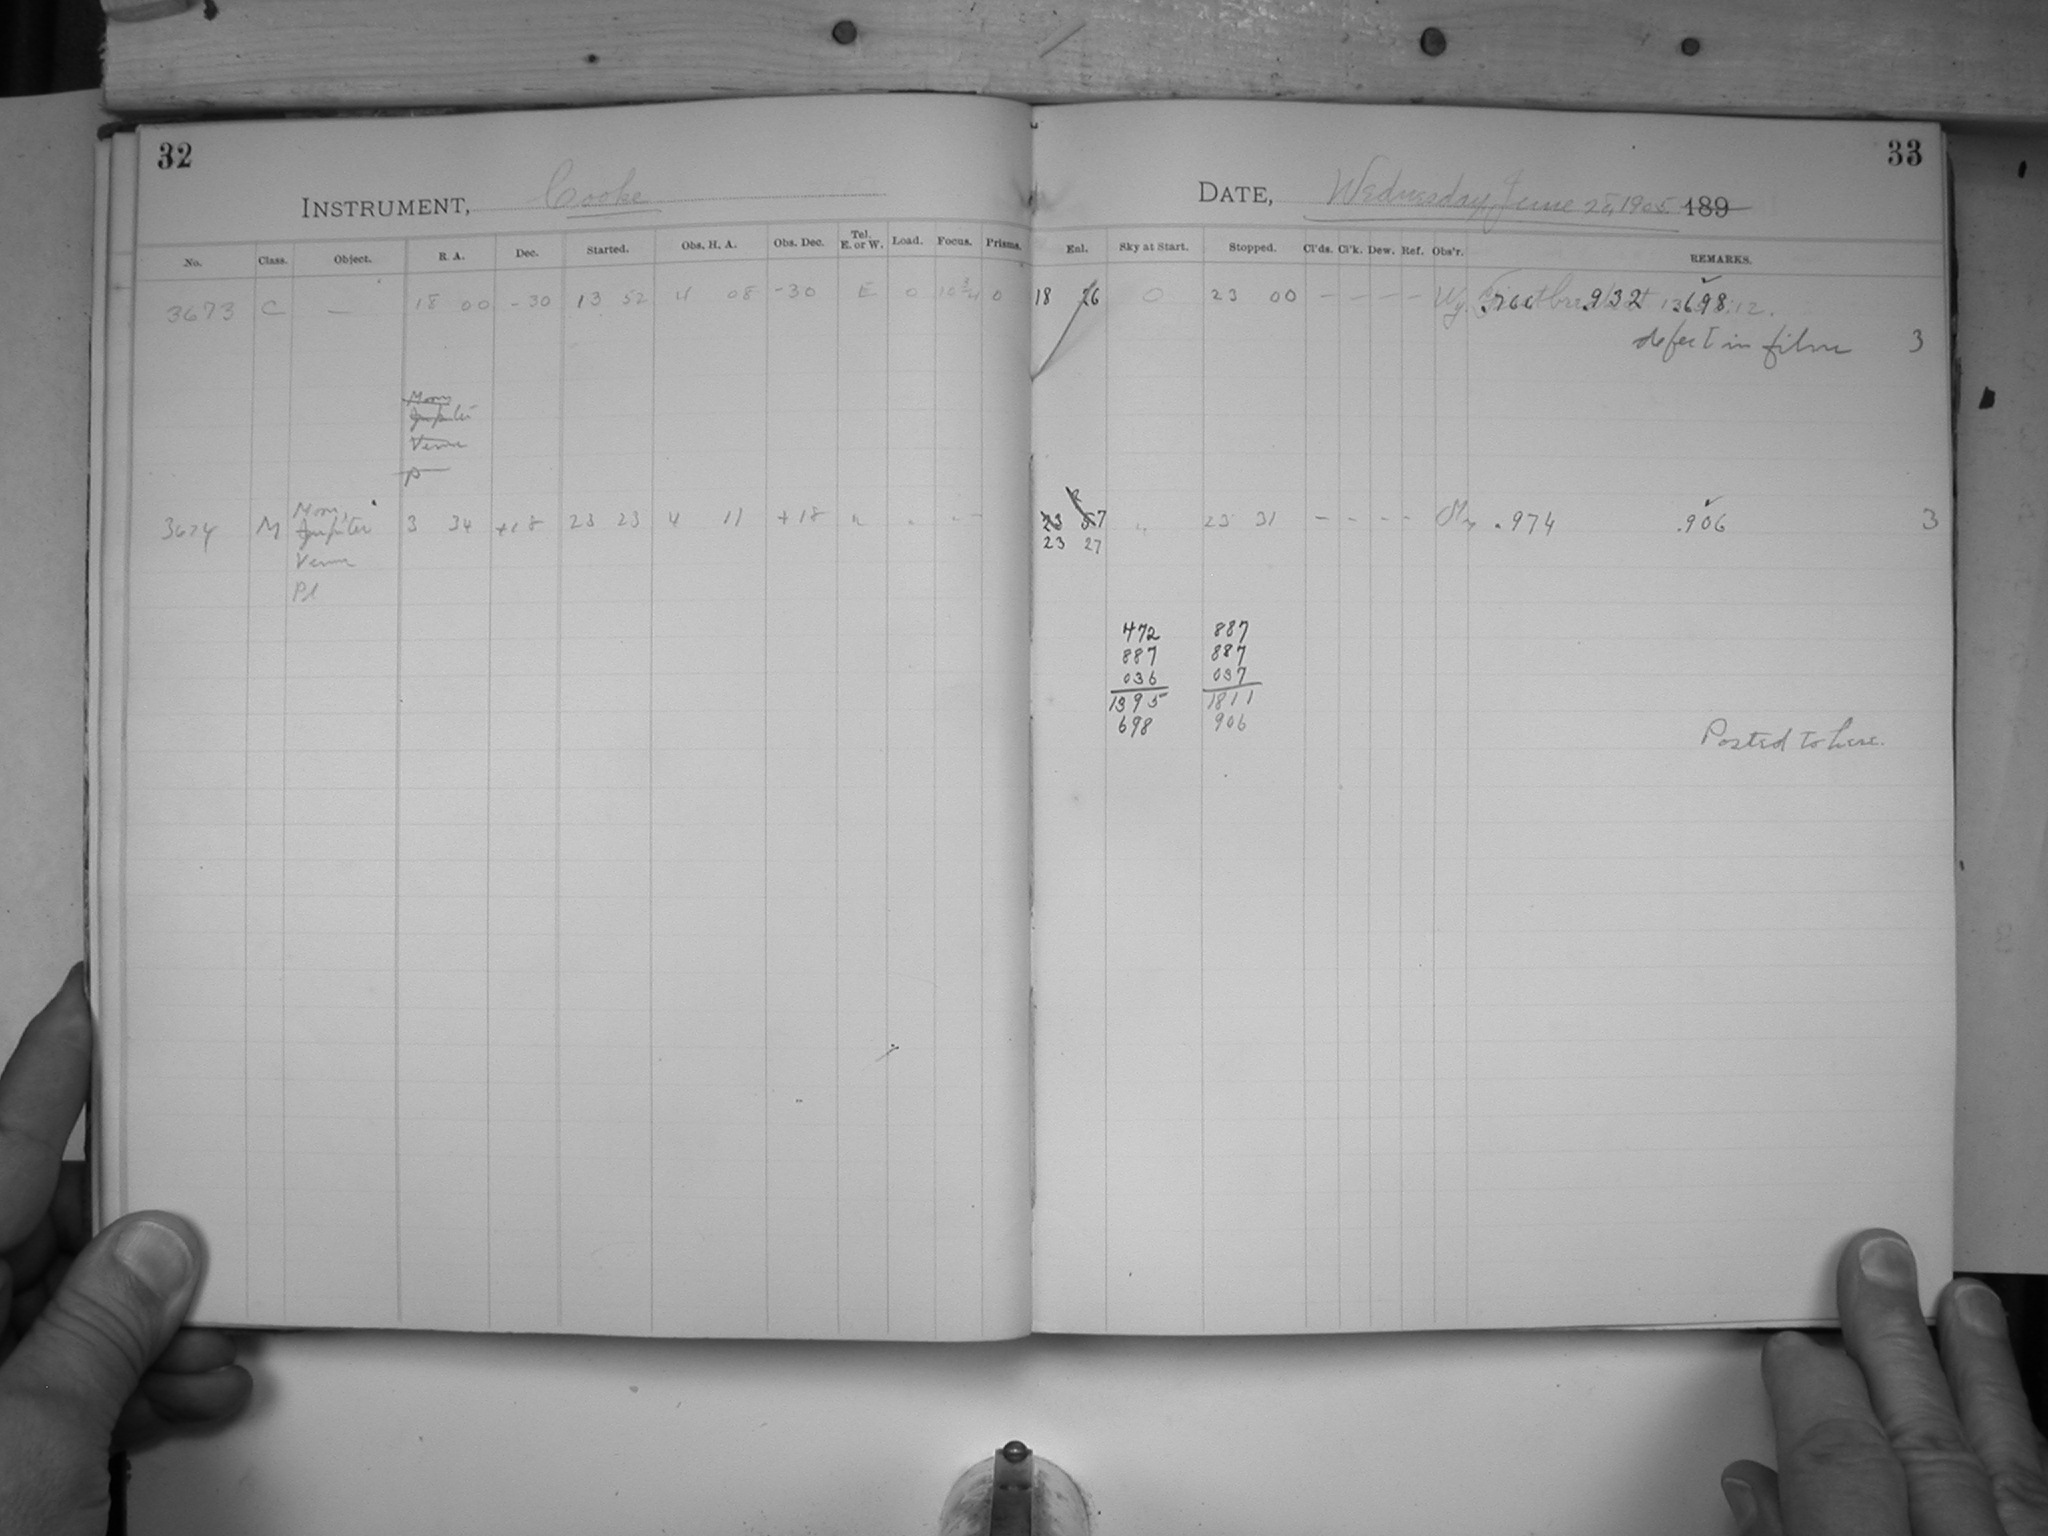 32
INSTRUMENT, Cooke
No. Class. Object. R. A. Dec. Started. Obs. H. A. Obs. Dec. Tel. E. or W. Load. Focus. Prisms.
3673 C — 18 00 -30 13 52 4 08 -30 E 0 10 3/4 0
Moon
Jupiter
Venus
P
3674 M Moon, Jupiter Venus Pl 3 34 +18 23 23 4 11 +18 " " — —
33
DATE, Wednesday, June 28, 1905 189
Enl. Sky at Start. Stopped. Cl'ds. Cl'k. Dew. Ref. Obs'r. REMARKS.
18 26 0 23 00 – – – – .932 .698
defect in film 3
R
23 57 " 23 31 – – – – .974 .906 3
23 27
472 887
887 887
036 037
1395 1811
698 906
Posted to here.